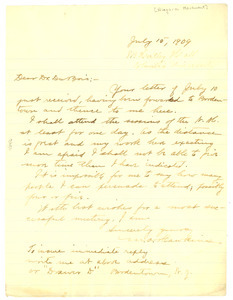 July 15, 1909
Dear Dr. Du Bois:-
Yours letter of July 10
just received, having been forwarded to Borden-
town and thence to me here.
I shall attend the sessions of the
at least for one day. As the distance
is great and my work here exacting
I am afraid I shall not be able to give
more time than I have indicated.
It is impossible for me to say how many
people I can persuade to attend, possibly
four or five.
With best wishes for a most suc-
cessful meeting, I am
Sincerely yours,
To insure immediate reply
write me at above address
or "Drawer D" Bordentown, N.J.